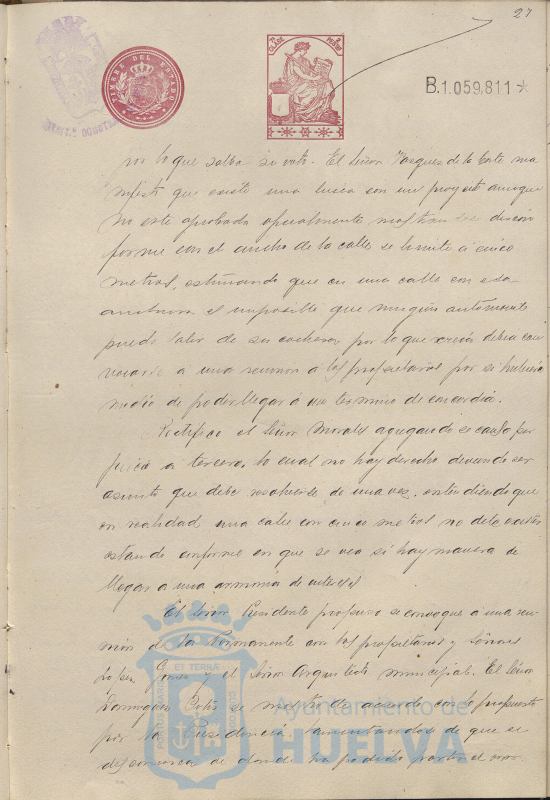 27
TIMBRE DEL ESTADO
B.1.059.811
por lo que salva su voto. El Señor Vazquez de la Corte ma
nifiesta que existe una linea con un proyecto aunque
no este aprobada oficialmente mostrandose discon
forme con el ancho de la calle se limite a cinco
metros, estimando que en una calle con esa
anchura es imposible que ningun automovil
pueda salir de sus cocheras por lo que creia debia con
vocarse a una reunion a los propietarios por si hubiera
medio de poder llegar á un termino de concordia.
Rectifico el Señor Morales agregando se causa per
juicio a tercero, lo cual no hay derecho debiendo ser
asunto que debe resolverse de una vez, entendiendo que
en realidad una calle con cinco metros no debe existir
estando conforme en que se vea si hay manera de
llegar a una armonia de intereses
El Señor Presidente propuso se convoque a una reu
nión de la Permanente con los propietarios y Señores
Lopez Gomez y el Señor Arquitecto municipal. El Señor
Dominguez Ortiz se mostro de acuerdo con lo propuesto
por la Presidencia lamentandose de que se
desconozca de donde ha podido partir el
Ayuntamiento de
HUELVA